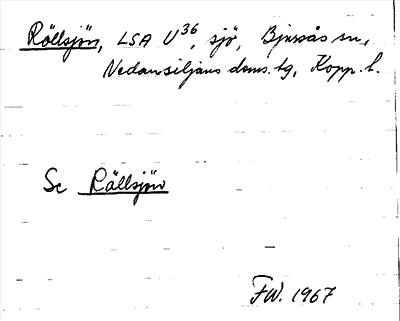 Röllsjön, LSA U36, sjö, Bjursås sn,
Nedansiljans doms. tg, Kopp. l.
Se Rällsjön
FW. 1967